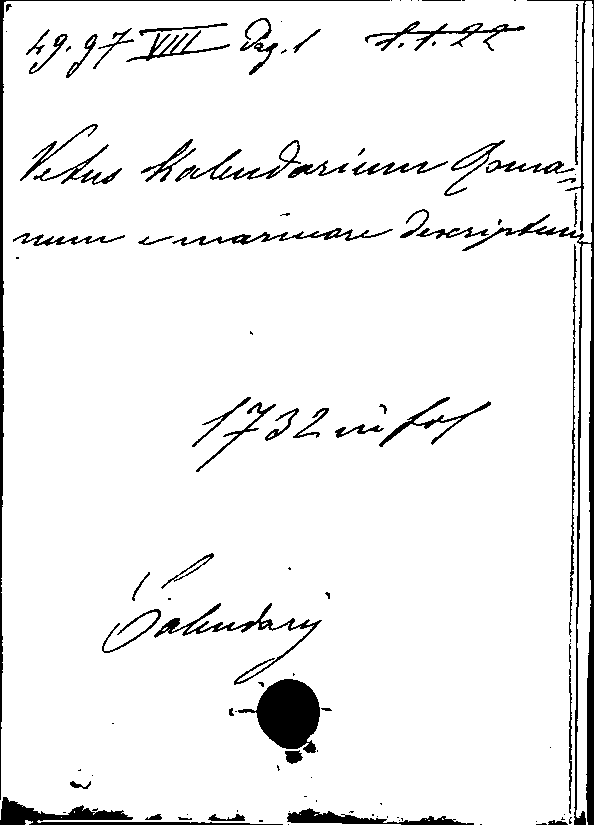 49.97 VIII Pag. 1 f. f. 22
Vetus Kalendarium Roma=
num e marmore descriptum
1732 in fol
Calendarij